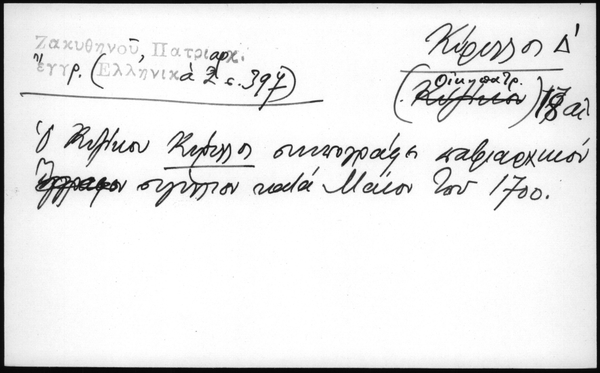 Ζακυθηνοῦ, Πατριαρχ.
ἔγγρ. (Ἑλληνικὰ 2 σ. 397)
Κύριλλος Δ΄
(Οἰκ. πατρ. Κυζίκου) 18 αἰ
Ὁ Κυζίκου Κύριλλος συνυπογράφει πατριαρχικόν
ἔγγραφον σιγίλλιον κατά Μάϊον τοῦ 1700.